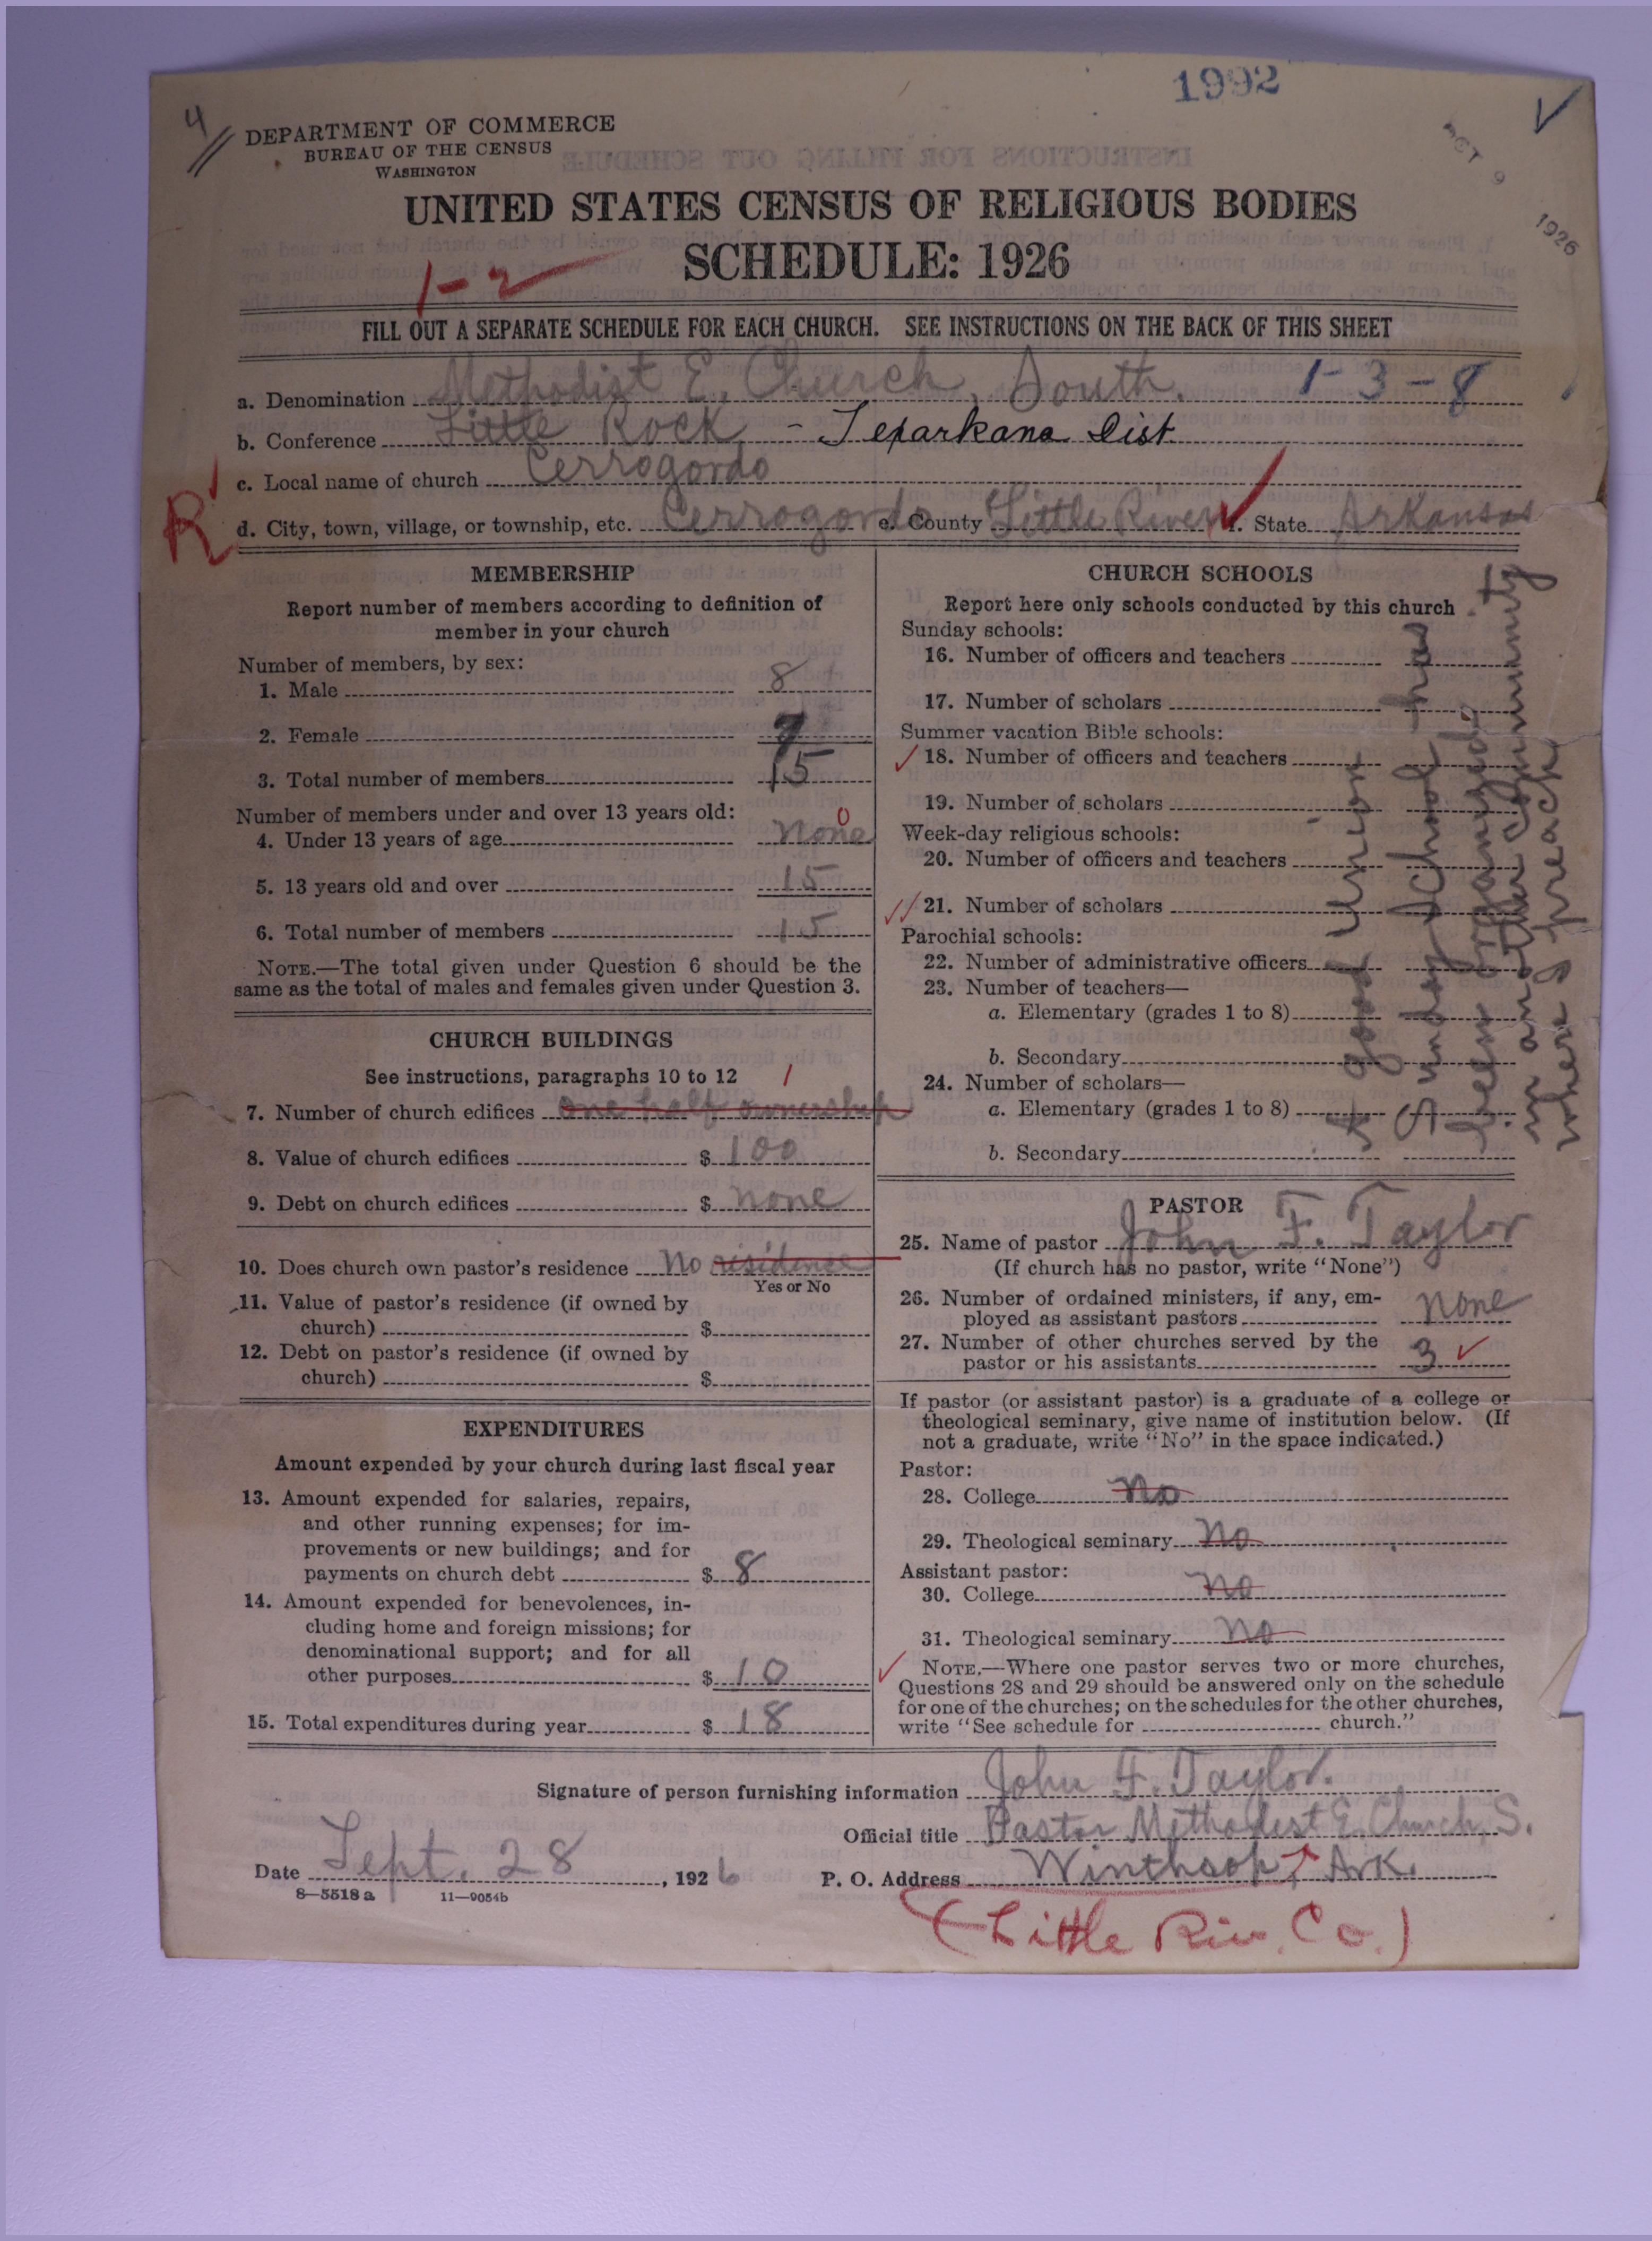 1992
4
DEPARTMENT OF COMMERCE
BUREAU OF THE CENSUS
WASHINGTON
OCT 9 1926
UNITED STATES CENSUS OF RELIGIOUS BODIES
SCHEDULE: 1926
1-2
FILL OUT A SEPARATE SCHEDULE FOR EACH CHURCH. SEE INSTRUCTIONS ON THE BACK OF THIS SHEET
a. Denomination Methodist E. Church, South. 1-3-8
b. Conference Little Rock - Texarkana Dist
c. Local name of church Cerrogordo
R d. City, town, village, or township, etc. Cerrogordo e. County Little River f. State Arkansas
MEMBERSHIP
Report number of members according to definition of
member in your church
Number of members, by sex:
1. Male 8
2. Female 7
3. Total number of members 15
Number of members under and over 13 years old:
4. Under 13 years of age none 0
5. 13 years old and over 15
6. Total number of members 15
NOTE.—The total given under Question 6 should be the
same as the total of males and females given under Question 3.
CHURCH BUILDINGS
See instructions, paragraphs 10 to 12 1
7. Number of church edifices one half ownership
8. Value of church edifices $ 100
9. Debt on church edifices $ none
10. Does church own pastor's residence No residence
Yes or No
11. Value of pastor's residence (if owned by
church) $
12. Debt on pastor's residence (if owned by
church) $
EXPENDITURES
Amount expended by your church during last fiscal year
13. Amount expended for salaries, repairs,
and other running expenses; for im-
provements or new buildings; and for
payments on church debt $ 8
14. Amount expended for benevolences, in-
cluding home and foreign missions; for
denominational support; and for all
other purposes $ 10
15. Total expenditures during year $ 18
CHURCH SCHOOLS
Report here only schools conducted by this church
Sunday schools:
16. Number of officers and teachers
17. Number of scholars
Summer vacation Bible schools:
18. Number of officers and teachers
19. Number of scholars
Week-day religious schools:
20. Number of officers and teachers
21. Number of scholars
Parochial schools:
22. Number of administrative officers
23. Number of teachers—
a. Elementary (grades 1 to 8)
b. Secondary
24. Number of scholars—
a. Elementary (grades 1 to 8)
b. Secondary
A good Union
Sunday School has
been organized
in another Community
where I preach
PASTOR
25. Name of pastor John F. Taylor
(If church has no pastor, write "None")
26. Number of ordained ministers, if any, em-
ployed as assistant pastors none
27. Number of other churches served by the
pastor or his assistants 3
If pastor (or assistant pastor) is a graduate of a college or
theological seminary, give name of institution below. (If
not a graduate, write "No" in the space indicated.)
Pastor:
28. College No
29. Theological seminary No
Assistant pastor:
30. College No
31. Theological seminary No
NOTE.—Where one pastor serves two or more churches,
Questions 28 and 29 should be answered only on the schedule
for one of the churches; on the schedules for the other churches,
write "See schedule for church."
Signature of person furnishing information John F. Taylor.
Official title Pastor Methodist E. Church, S.
Date Sept. 28, 1926 P. O. Address Winthrop, Ark.
8—5518a 11—9054b
(Little Riv. Co.)